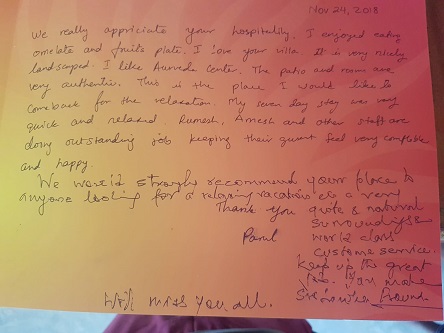 Nov 24, 2018
We really appriciate your hospitality. I enjoyed eating
omelate and fruits plate. I love your villa. It is very nicely
landscaped. I like Aurveda Center. The patio and room are
very authentic. This is the place I would like to
comeback for the relaxation. My seven day stay was very
quick and relaxed. Rumesh, Amesh and other staff are
doing outstanding job keeping their guest feel very comftble
and happy.
We would strongly recommend your place to
anyone looking for a relaxing vacation at a very
Thank you quote & natural
surroundings &
Parul world class
customer service.
Keep up the great
You make
Sri Lanka
Will miss you all.